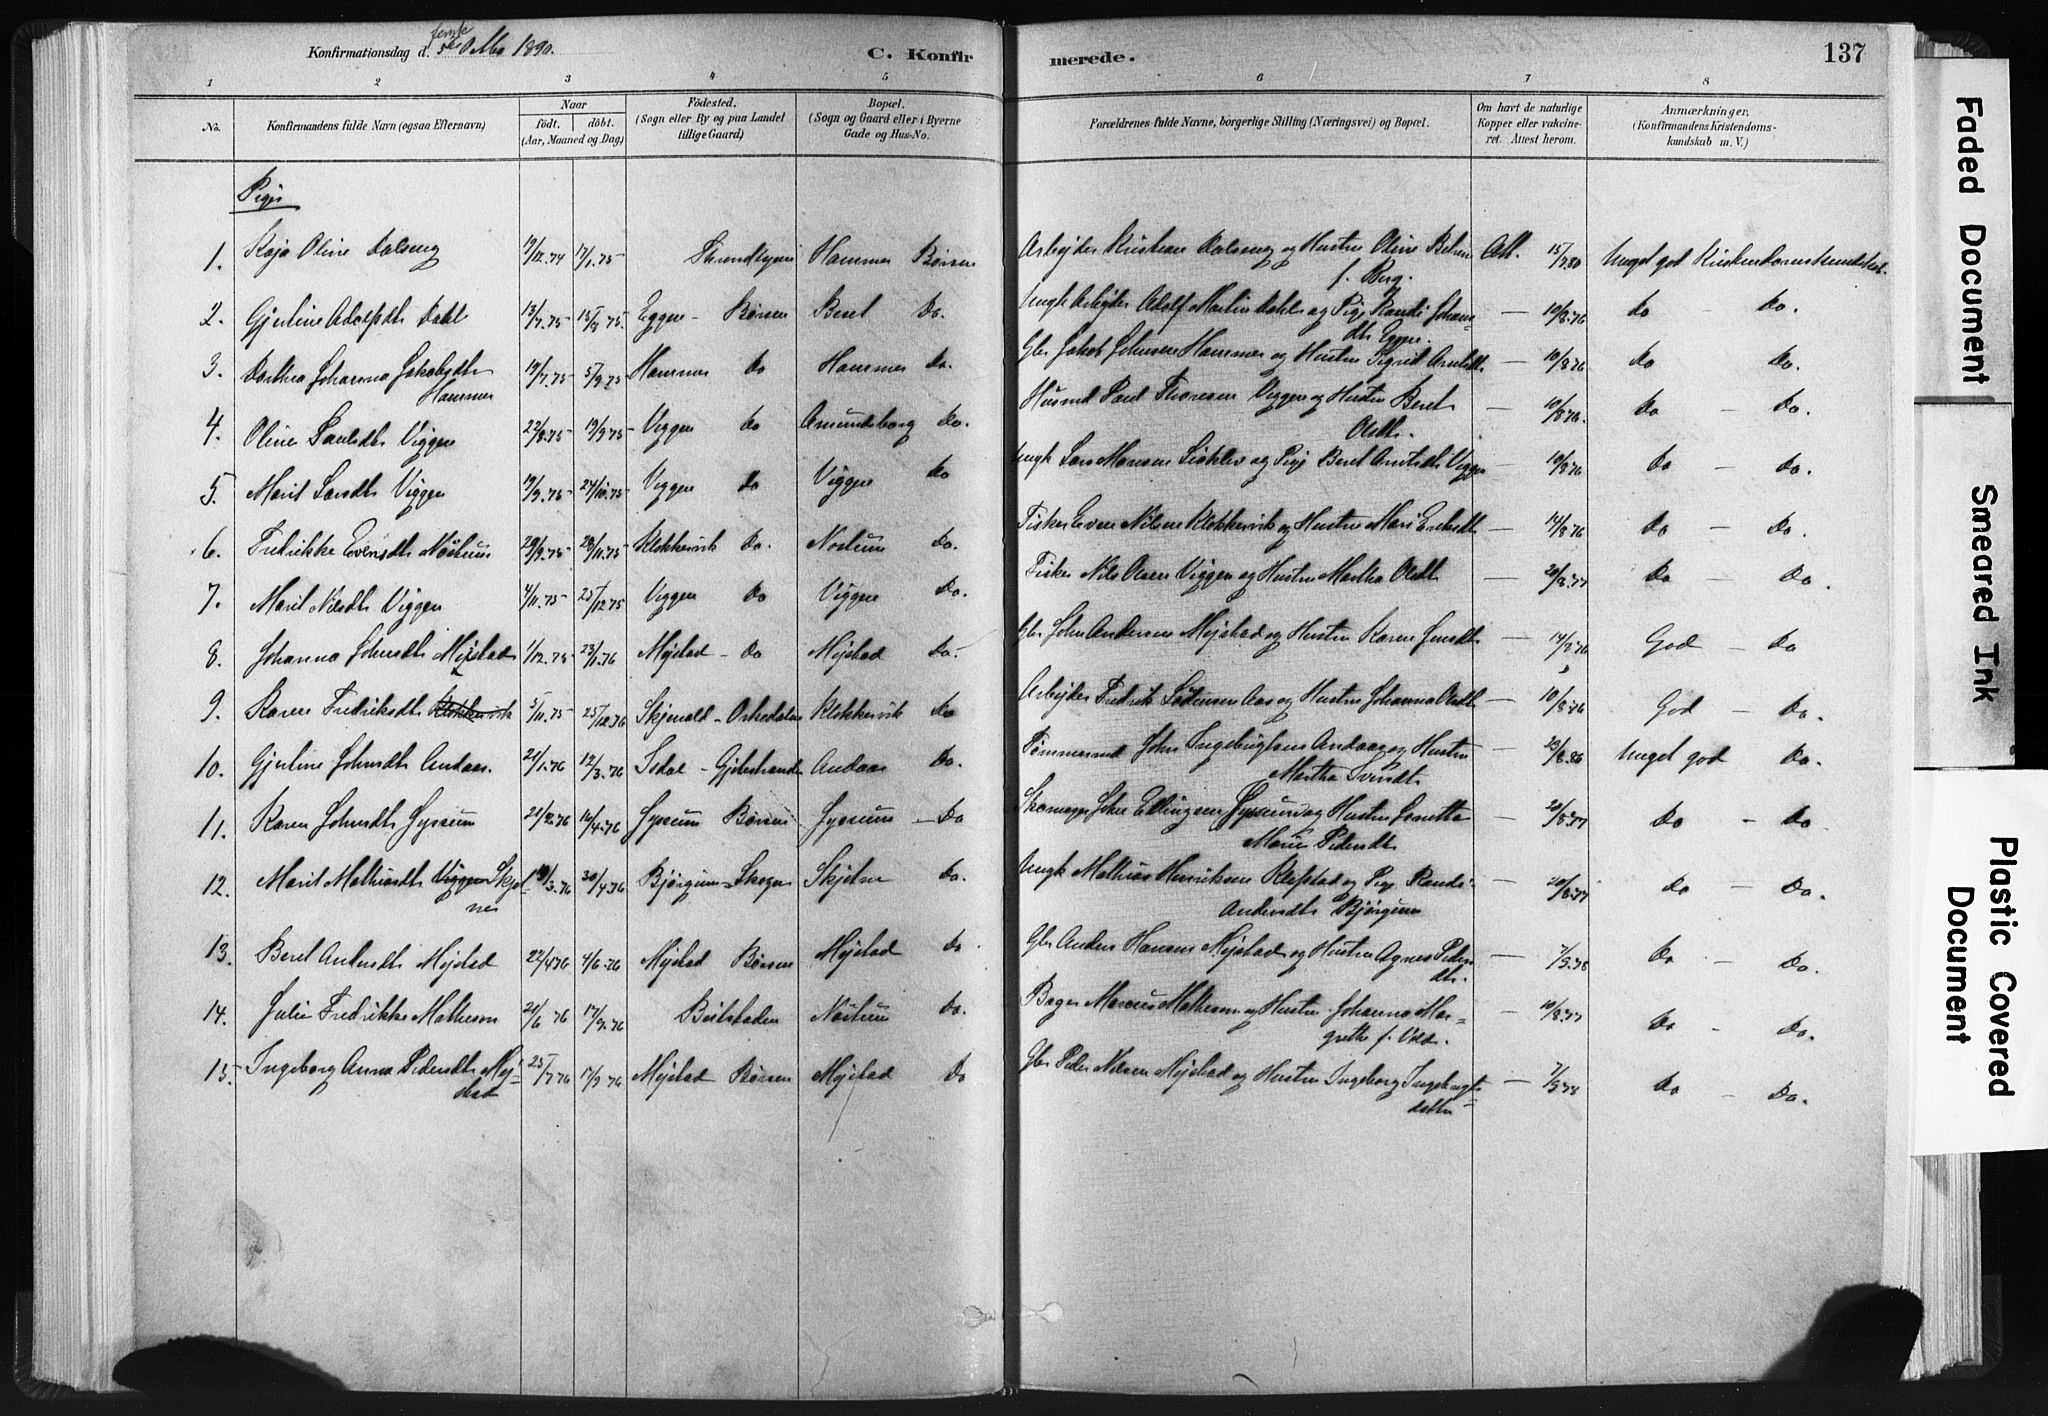 Konfirmationsdag d. 5te Okto 1890.
femte
C. Konfirmerede.
137
1 2 3 4 5 6 7 8
No.
Konfirmandens fulde Navn (ogsaa Efternavn)
Naar
født. døbt.
(Aar, Maaned og Dag)
Fødested.
(Sogn eller By og paa Landet
tillige Gaard)
Bopæl.
(Sogn og Gaard eller i Byerne
Gade og Hus-No.
Forældrenes fulde Navne, borgerlige Stilling (Næringsvei) og Bopæl.
Om havt de naturlige
Kopper eller vakcine-
ret. Attest herom.
Anmærkninger.
(Konfirmandens Kristendoms-
kundskab m. V.)
Piger
1. Kaja Oline Dalseng 19/12.74 17/1.75 Trondhjem Hammer Børsen Arbejder Kristian Dalseng og Hustru Oline
f. Berg. Att. 15/7.80 Meget god Kristendomskundskab.
2. Gjertine Adolfsdtr Dahl 13/7.75 15/8.75. Eggen - Børsen Beret Do. Ungk Arbejder Adolf Martin Dahl og Pige Randi Johans-
dtr Eggen. — 10/8.76 do - Do.
3. Dorthea Johanna Jakobsdtr
Hammer 19/7.75 5/9.75 Hammer Do Hammer Do. Gbr Jakob Johnsen Hammer og Hustru Sigrid Arntsdtr — 10/8.76 do Do.
4. Oline Paulsdtr Viggen 22/8.75 19/9.75 Viggen do Amundsborg do. Husmd Paul Thoresen Viggen og Hustru Beret
Olsdtr. — 10/8.76. Do - Do.
5. Marit Larsdtr Viggen 19/9.75 24/10.75 Viggen do Viggen do Ungk Lars Monsen og Pige Beret Arntsdtr Viggen — 10/8.76 Do - Do.
6. Fredrikke Evensdtr Nostrum 29/9.75 28/11.75 Klokkervik Do. Nostrum Do. Fisker Even Nilsen Klokkervik og Hustru Mari Eriksdtr — 14/8.76 Do - Do.
7. Marit Nilsdtr Viggen 4/11.75 25/12.75 Viggen Do Viggen Do. Fisker Nils Olsen Viggen og Hustru Martha Olsdtr — 20/8.77 Do - Do.
8. Johanna Johnsdtr Mjøstad 1/12.75 23/1.76 Mjøstad - Do Mjøstad Do. Gbr John Andersen Mjøstad og Hustru Karen Jensdtr — 14/8.76 God - Do
9. Karen Fredriksdtr Klokkervik 5/11.75 25/12.76 Skjenald - Orkedalen Klokkervik Do Arbejder Fredrik Sørensen Aas og Hustru Johanna Olsdtr — 10/8.76 God - Do.
10. Gjertine Johnsdtr Andaas. 21/1.76 12/3.76 Andaas Do. Tømmermd John Ingebrigtsen Andaas og Hustru
Martha Svendt. — 23/8.86 Meget god Do.
11. Karen Johnsdtr Gyssum 21/2.76 16/4.76 Gyssum Børsen Gyssum - Do Skomager John Ellingsen Gyssum og Hustru
Marie Pedersdt. — 20/8.77 Do - Do
12. Marit Mathiasdtr Viggen Skjet-
nes 19/3.76 30/4.76 Bjørgum - Skogn Skjetne Do. Ungk Mathias Henriksen Klefstad og Pige Randi
Andersdtr Bjørgum — 20/8.77 Do - Do.
13. Beret Andersdtr Mjøstad 22/4.76 4/6.76 Mjøstad Børsen Mjøstad Do Gbr Anders Hansen Mjøstad og Hustru Agnes Peders-
dtr. — 7/5.78 Do - Do.
14. Julie Fredrikke Matheson 21/6 76 17/9.76 Beitstaden Nostrum Do. Bager Marcus Matheson og Hustru Johanna Mar-
grethe f. — 10/8.77 Do - Do.
15. Ingeborg Anna Pedersdtr Mjø-
stad 25/7.76 17/9.76 Mjøstad Børsen Mjøstad Do Gbr Peder Nilsen Mjøstad og Hustru Ingeborg Ingebrigts-
datter — 7/5.78 Do - Do.
Faded Document
Smeared Ink
Plastic Covered
Document